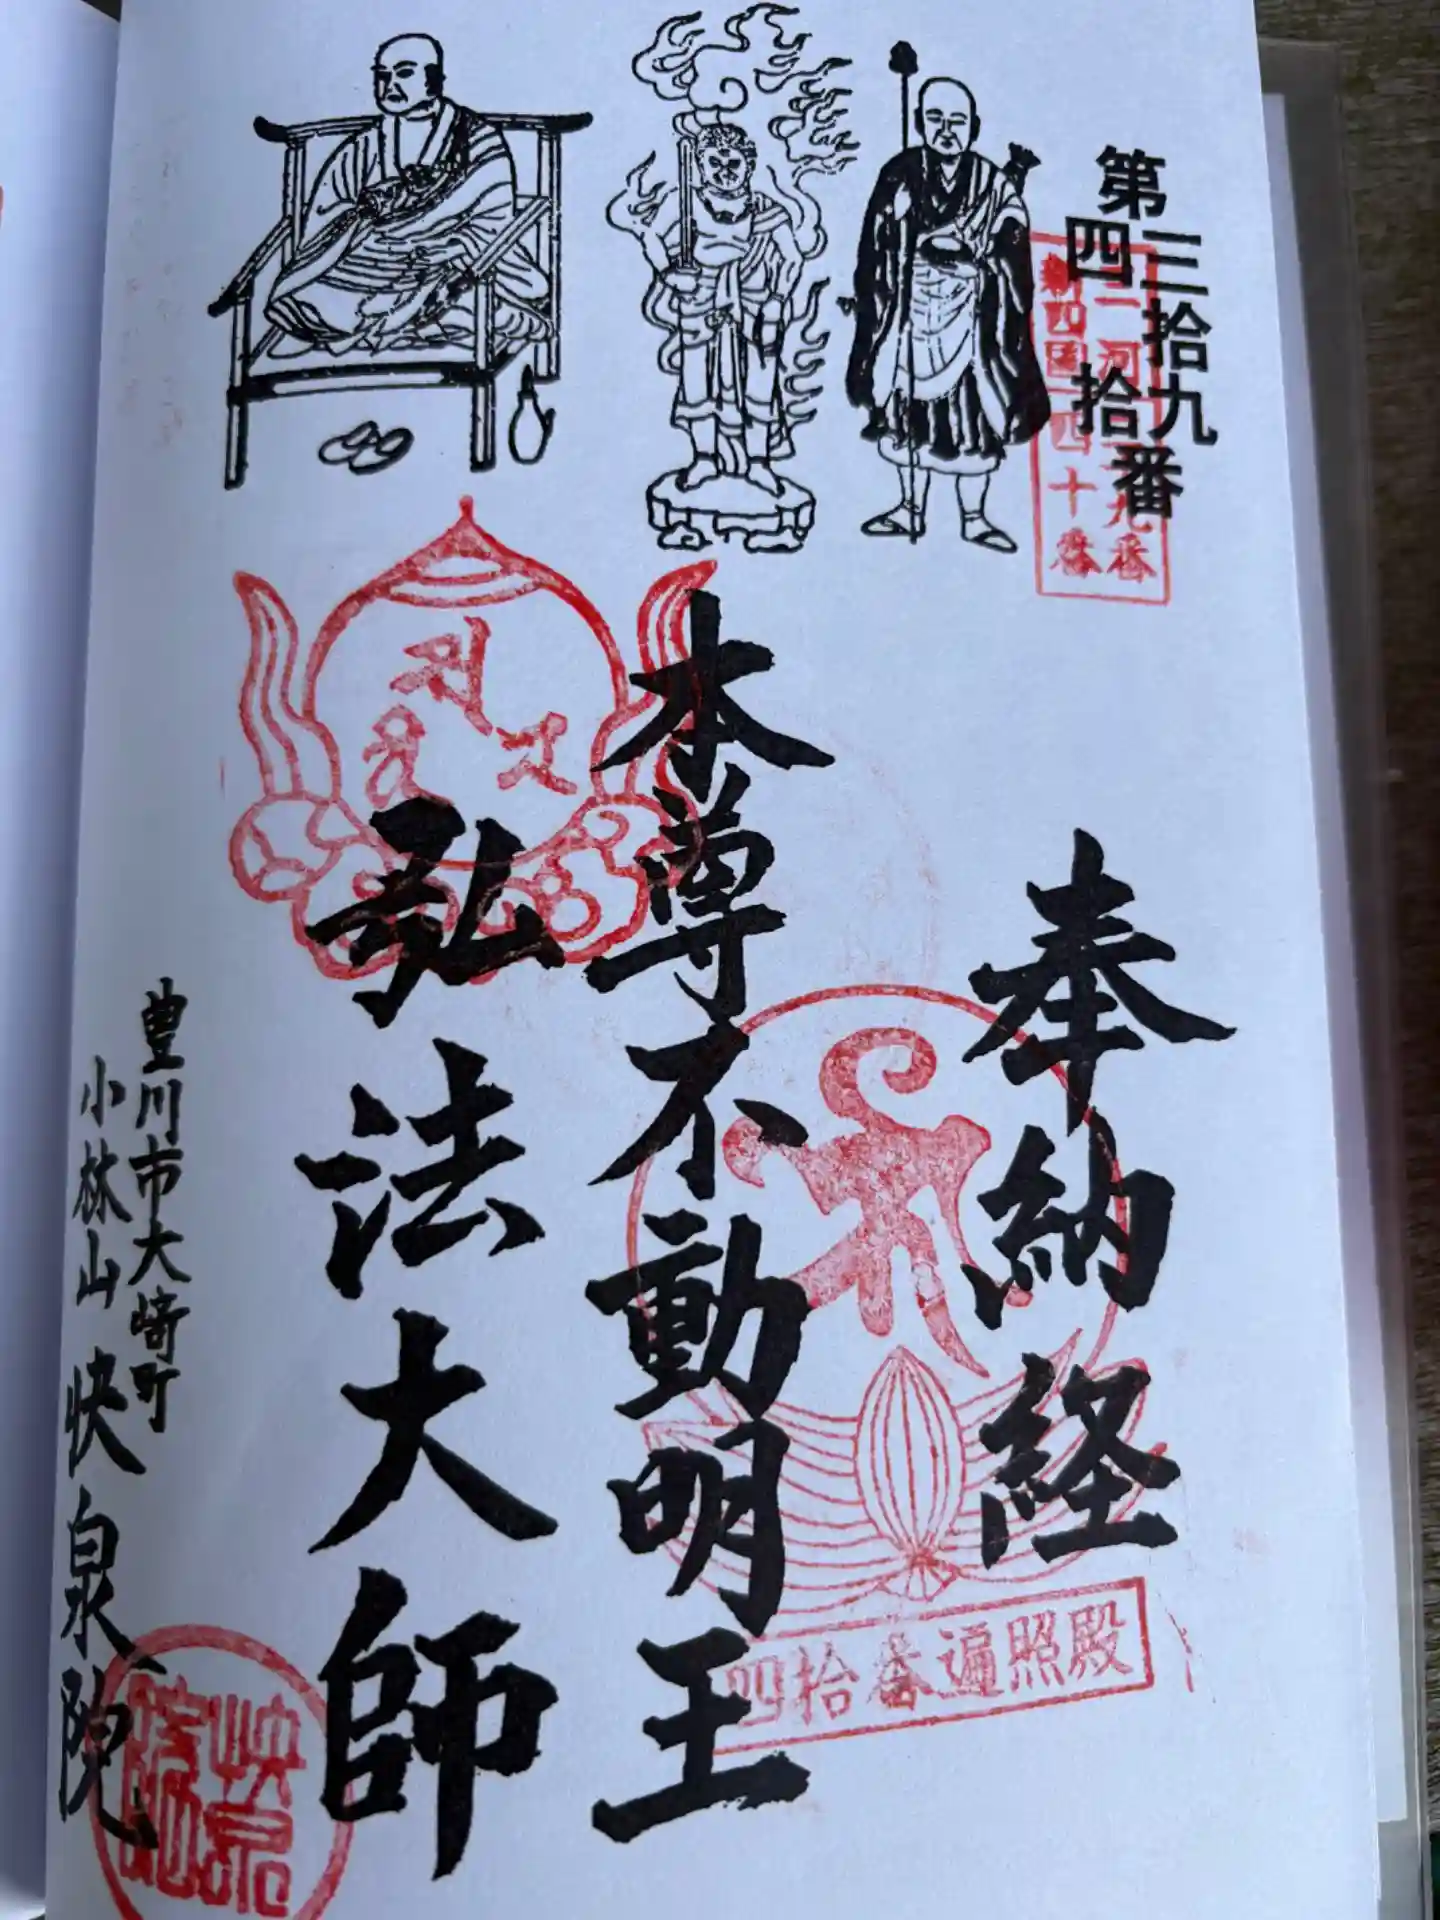 第三拾九
四拾番
三河
新四国
九番
四十番
奉納経
本尊不動明王
弘法大師
四拾番遍照殿
豊川市大崎町
小林山 快泉院
快泉院